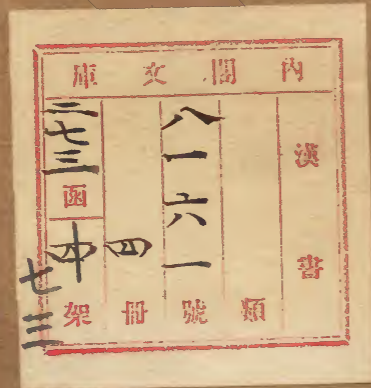 内閣文庫
漢書
類
八一六一號
四冊
二七三函
架